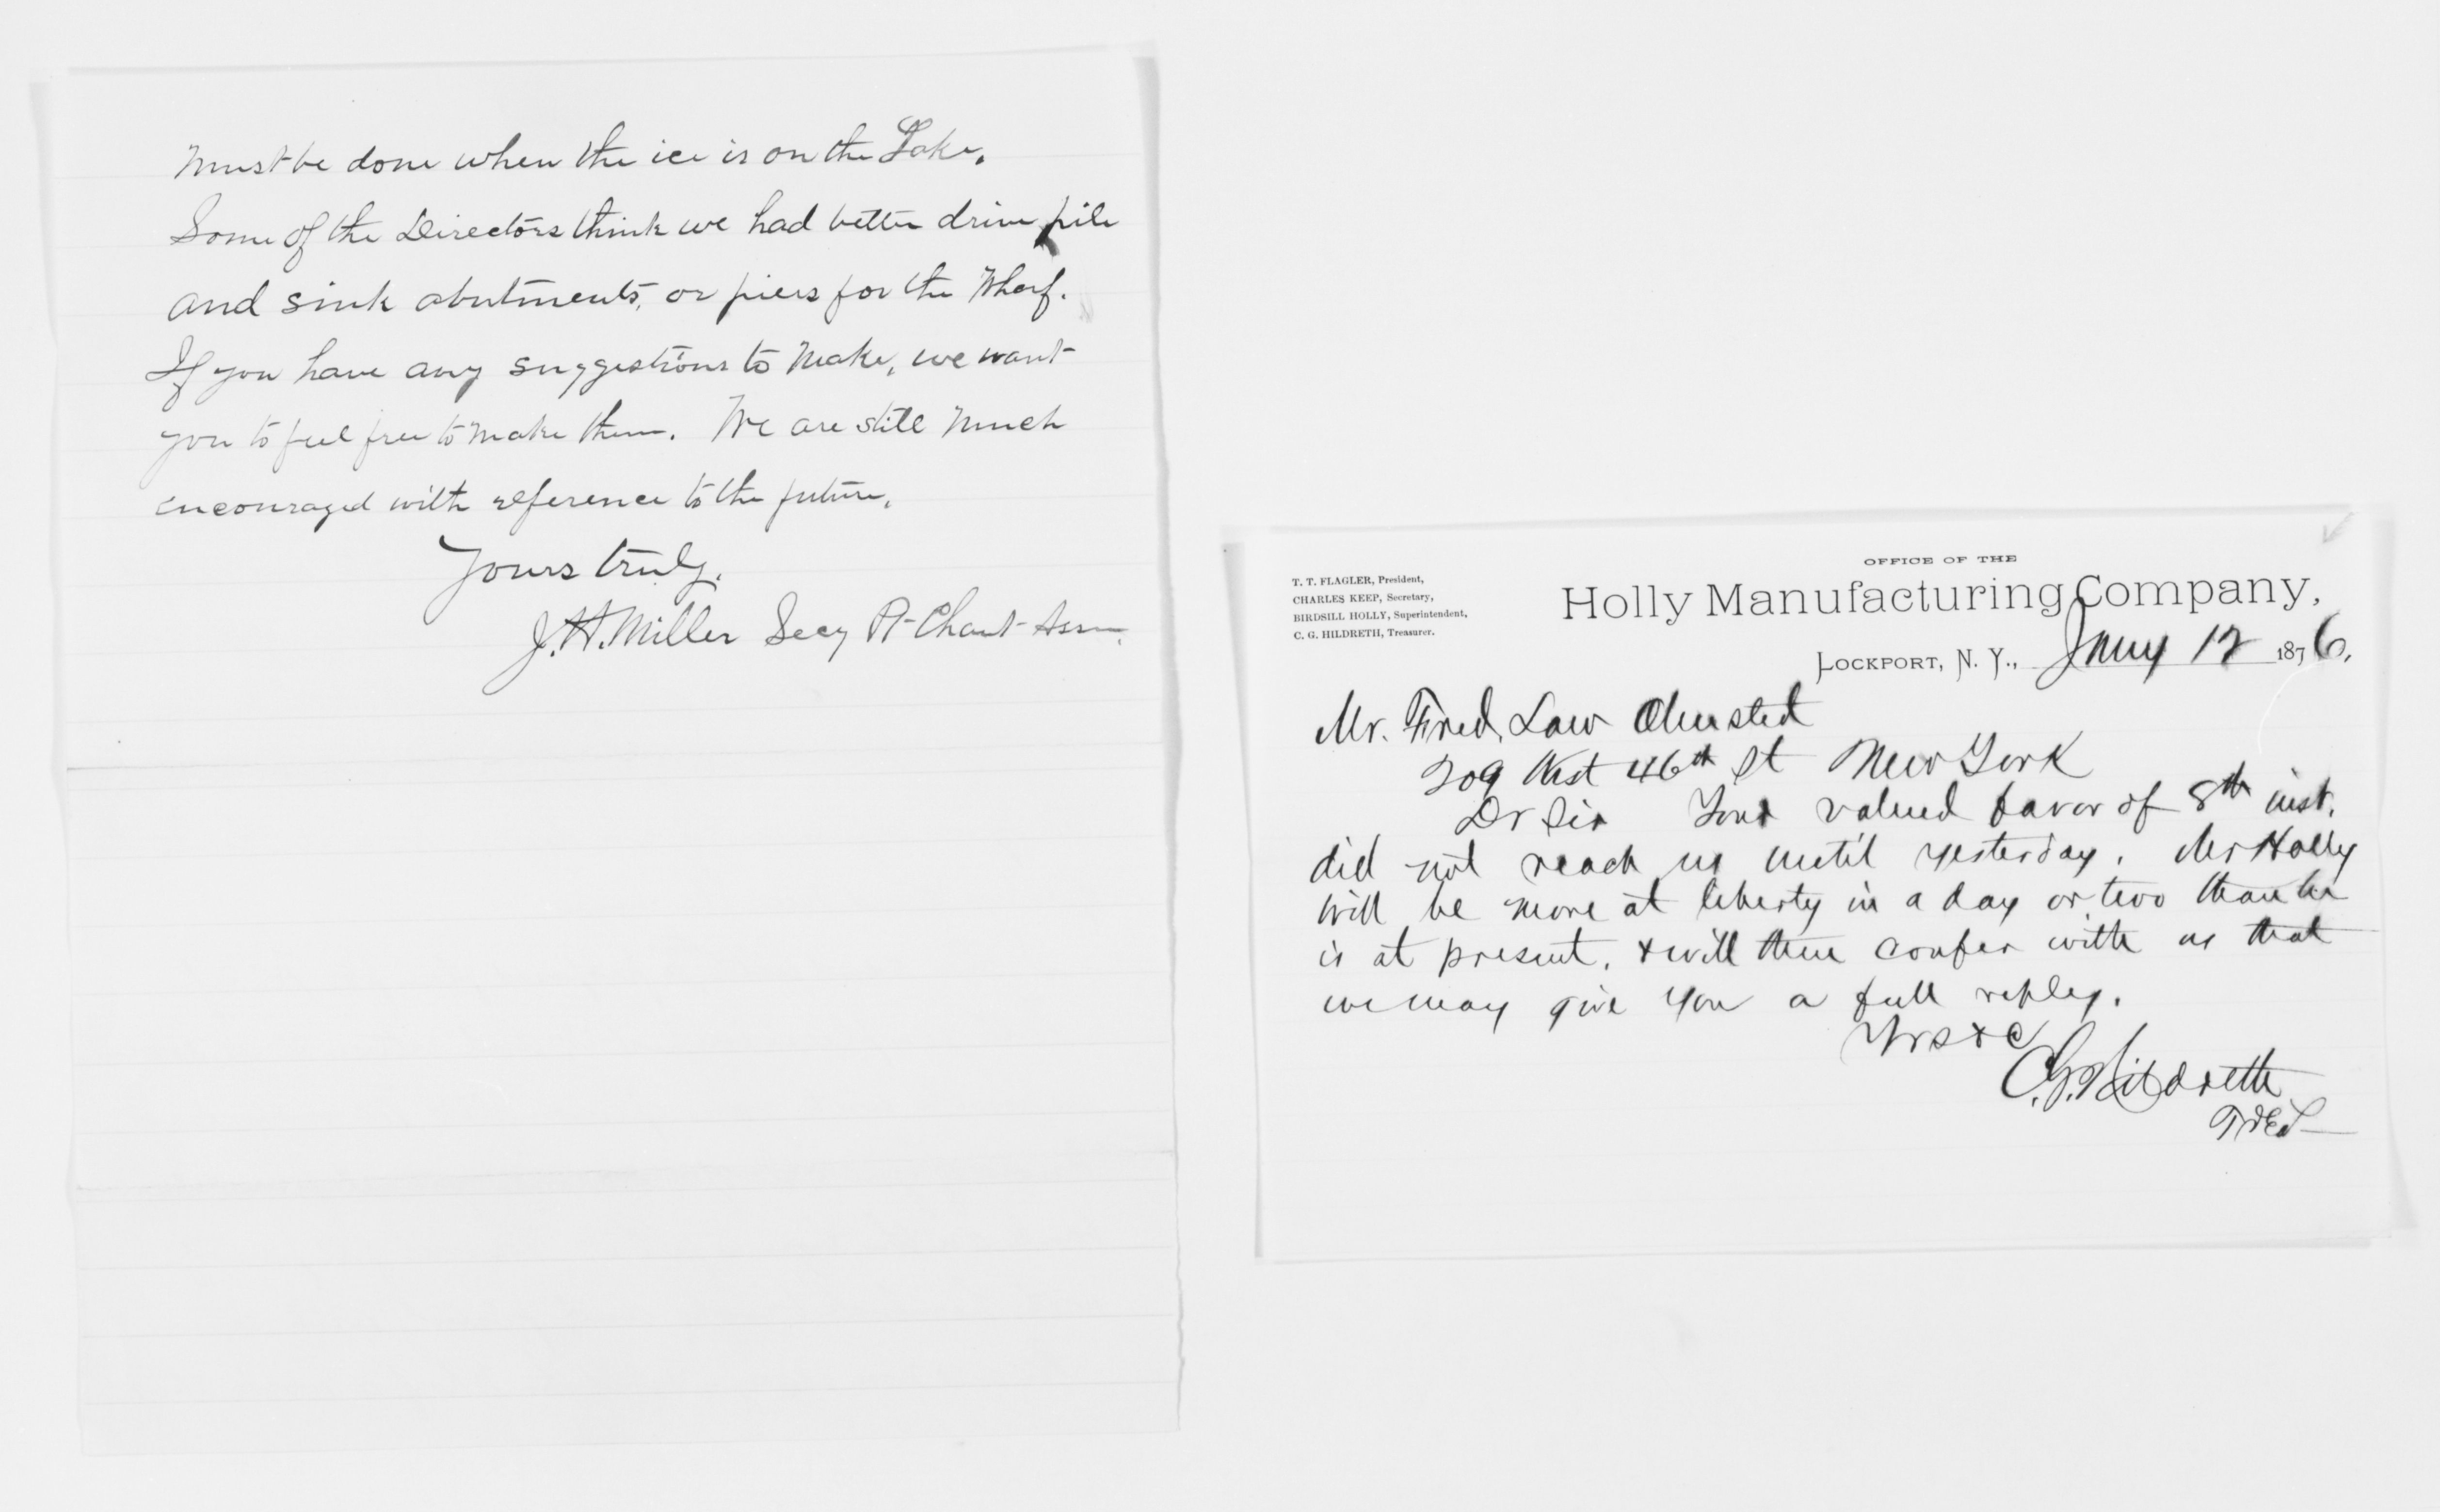 Must be done when the ice is on the Lake.
Some of the Directors think we had better drive pile
and sink abutments, or piers for the Wharf.
If you have any suggestions to Make, we want
you to feel free to make them. We are still Much
encouraged with reference to the future.
Yours truly,
J. H. Miller Secy Pt Chaut Assn.
OFFICE OF THE
Holly Manufacturing Company,
T. T. FLAGLER, President,
CHARLES KEEP, Secretary,
BIRDSILL HOLLY, Superintendent,
C. G. HILDRETH, Treasurer.
LOCKPORT, N. Y., Jany 12 1876.
Mr. Fred. Law Olmsted
209 West 46th St New York
Dr Sir Your valued favor of 8th inst.
did not reach us until yesterday. Mr Holly
will be more at liberty in a day or two than he
is at present, & will then confer with us that
we may give you a full reply.
Yrs &c
C. G. Hildreth
Tres